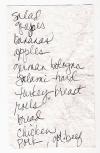 Salad
grapes
bananas
apples
german bologna
Salami - hard
turkey breast
rolls
bread
chicken
pork